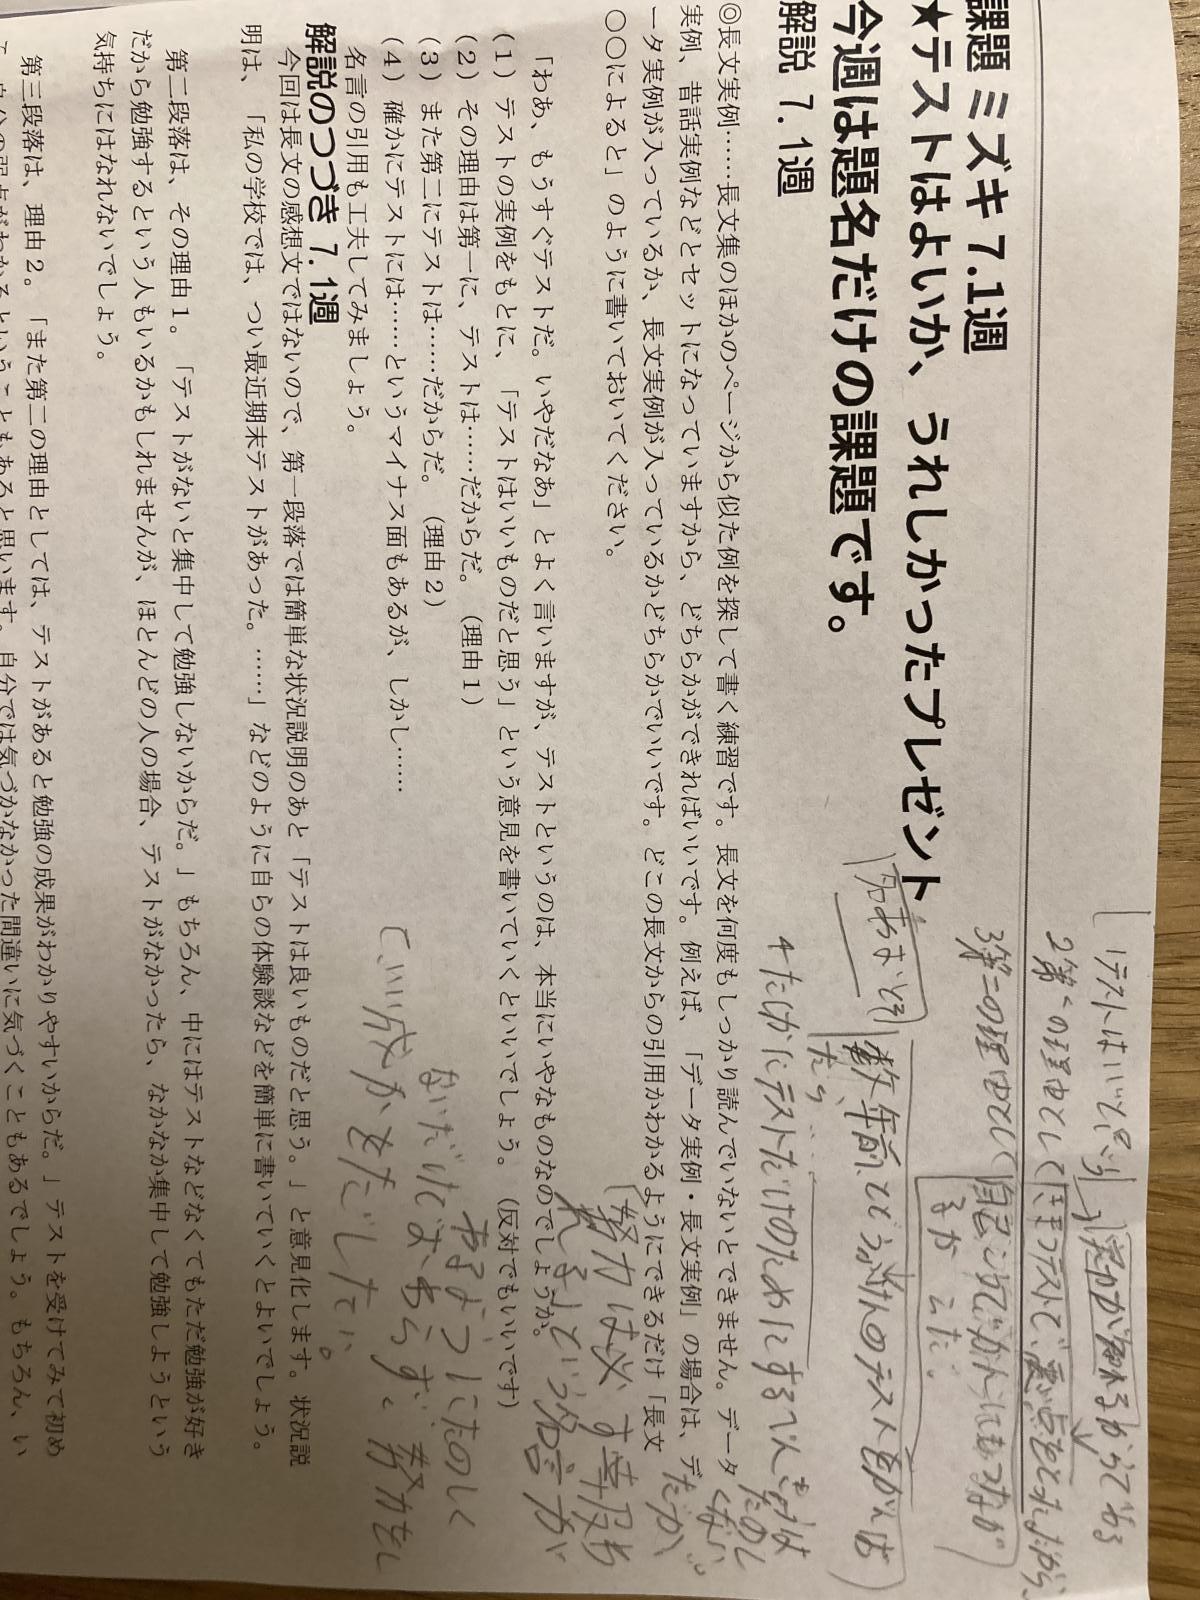 課題 ミズキ 7.1週
★テストはよいか、うれしかったプレゼント
今週は題名だけの課題です。
解説 7.1週
◎長文実例……長文集のほかのページから似た例を探して書く練習です。長文を何度もしっかり読んでいないとできません。データ
実例、昔話実例などとセットになっていますから、どちらかができればいいです。例えば、「データ実例・長文実例」の場合は、デ
ータ実例が入っているか、長文実例が入っているかどちらかでいいです。どこの長文からの引用かわかるようにできるだけ「長文
○○によると」のように書いておいてください。
「わあ、もうすぐテストだ。いやだなあ」とよく言いますが、テストというのは、本当にいやなものなのでしょうか。
(1) テストの実例をもとに、「テストはいいものだと思う」という意見を書いていくといいでしょう。(反対でもいいです)
(2) その理由は第一に、テストは……だからだ。(理由1)
(3) また第二にテストは……だからだ。(理由2)
(4) 確かにテストには……というマイナス面もあるが、しかし……
名言の引用も工夫してみましょう。
解説のつづき 7.1週
今回は長文の感想文ではないので、第一段落では簡単な状況説明のあと「テストは良いものだと思う。」と意見化します。状況説
明は、「私の学校では、つい最近期末テストがあった。……」などのように自らの体験談などを簡単に書いていくとよいでしょう。
第二段落は、その理由1。「テストがないと集中して勉強しないからだ。」もちろん、中にはテストなどなくてもただ勉強が好き
だから勉強するという人もいるかもしれませんが、ほとんどの人の場合、テストがなかったら、なかなか集中して勉強しようという
気持ちにはなれないでしょう。
第三段落は、理由2。「また第二の理由としては、テストがあると勉強の成果がわかりやすいからだ。」テストを受けてみて初め
て自分の弱点がわかるということもあると思います。自分では気づかなかった間違いに気づくこともあるでしょう。もちろん、い
1テストはいいと思う
2第一の理由として
3第二の理由として
4たしかにテストだけのために
数年前
努力は必ず報
れるという名言が
あるようにたのしく
努力をし